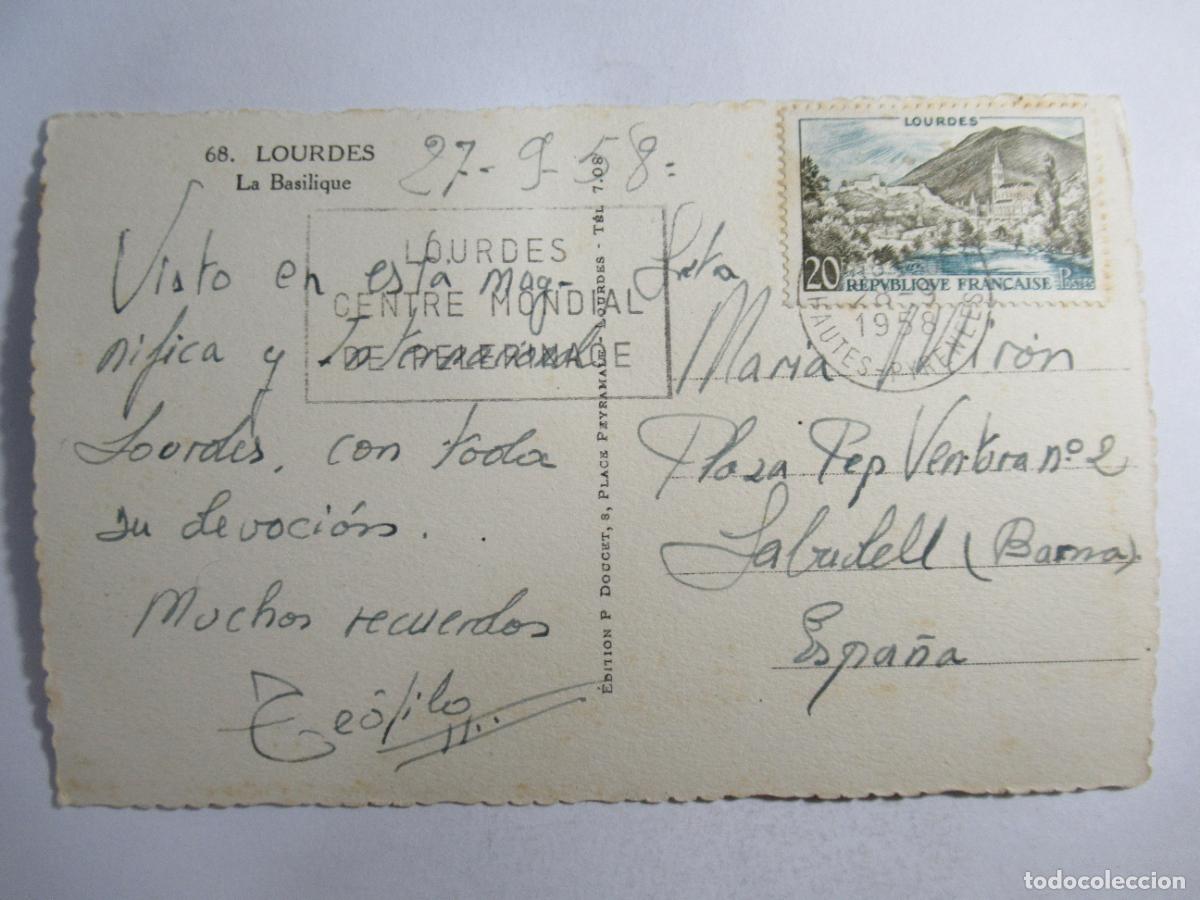 68. LOURDES
La Basilique
27-9-58-
Visto en esta mag-
nifica y Internacional
Lourdes, con toda
su devoción.
Muchos recuerdos
Teófilo
LOURDES
CENTRE MONDIAL
DE PELERINAGE
ÉDITION P DOUCET, 8, PLACE PEYRAMALE - LOURDES - TÉL 7.08
LOURDES
20 REPVBLIQVE FRANÇAISE Postes
28-9
1958
HAUTES-PYRENEES
Srta
Maria Mirón
Plaza Pep Ventura nº 2
Sabadell (Barna).
España
todocoleccion